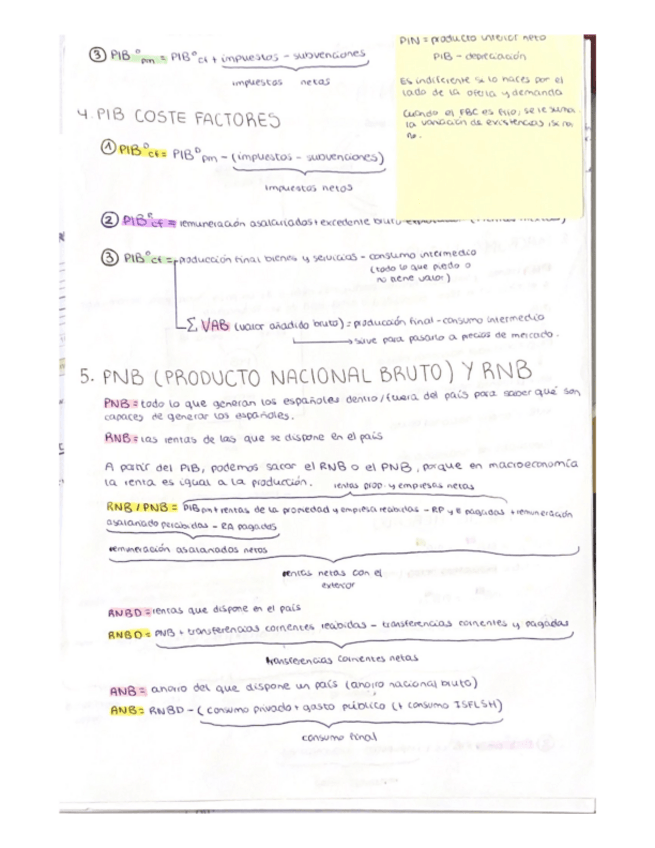 PIN = producto interior neto
PIB - depreciación
Es indiferente si lo haces por el
lado de la oferta y demanda
Cuando el FBC es fijo, se le suma
la variación de existencias, si no
no.
③ PIBᴼpm = PIBᴼcf + impuestos - subvenciones
impuestos netos
4. PIB COSTE FACTORES
① PIBᴰcf = PIBᴰpm - (impuestos - subvenciones)
impuestos netos
② PIB cf = remuneración asalariados + excedente bruto
③ PIBᴼcf = producción final bienes y servicios - consumo intermedio
(todo lo que puedo o
no tiene valor)
Σ VAB (valor añadido bruto) = producción final - consumo intermedio
sirve para pasarlo a precios de mercado.
5. PNB (PRODUCTO NACIONAL BRUTO) Y RNB
PNB = todo lo que generan los españoles dentro/fuera del país para saber qué son
capaces de generar los españoles.
RNB = las rentas de las que se dispone en el país
A partir del PIB, podemos sacar el RNB o el PNB, porque en macroeconomía
la renta es igual a la producción.
rentas prop. y empresas netas
RNB / PNB = PIBpm + rentas de la propiedad y empresa recibidas - RP y e pagadas + remuneración
asalariado percibidas - RA pagados
remuneración asalariados netos
rentas netas con el
exterior
RNBD = rentas que dispone en el país
RNBD = PNB + transferencias corrientes recibidas - transferencias corrientes y pagadas
transferencias corrientes netas
ANB = ahorro del que dispone un país (ahorro nacional bruto)
ANB = RNBD - (consumo privado + gasto público (+ consumo ISFLSH)
consumo final